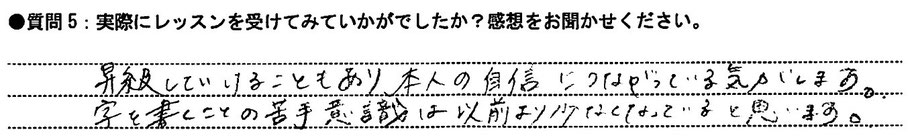 ●質問5：実際にレッスンを受けてみていかがでしたか？感想をお聞かせください。
昇級していけることもあり本人の自信につながっている気がします。
字を書くことの苦手意識は以前より少なくなっていると思います。